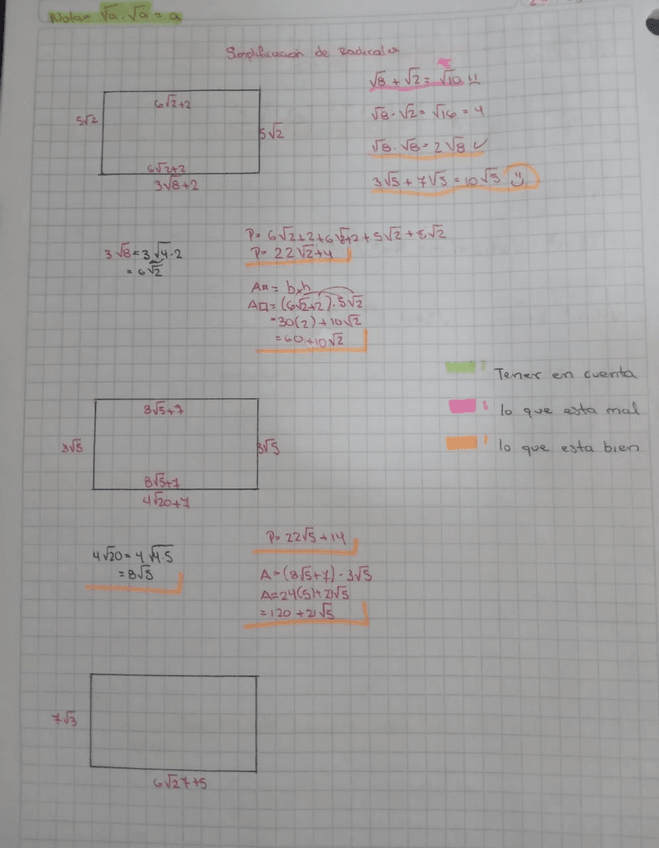 Nota: √a . √a = a
Simplificación de Radicales
√8 + √2 = √10 !!
√8 . √2 = √16 = 4
√8 . √8 = 2√8 ✓
3√5 + 7√5 = 10√5
6√2+2
5√2
5√2
6√2+2
3√8+2
3√8 = 3√4·2
= 6√2
P= 6√2+2+6√2+2+5√2+5√2
P= 22√2+4
A□= b.h
A□= (6√2+2) . 5√2
=30(2)+10√2
=60+10√2
: Tener en cuenta
: lo que esta mal
: lo que esta bien
8√5+7
3√5
3√5
8√5+7
4√20+7
4√20=4√4·5
=8√5
P= 22√5+14
A=(8√5+7) . 3√5
A=24(5)+21√5
=120+21√5
7√3
6√27+5